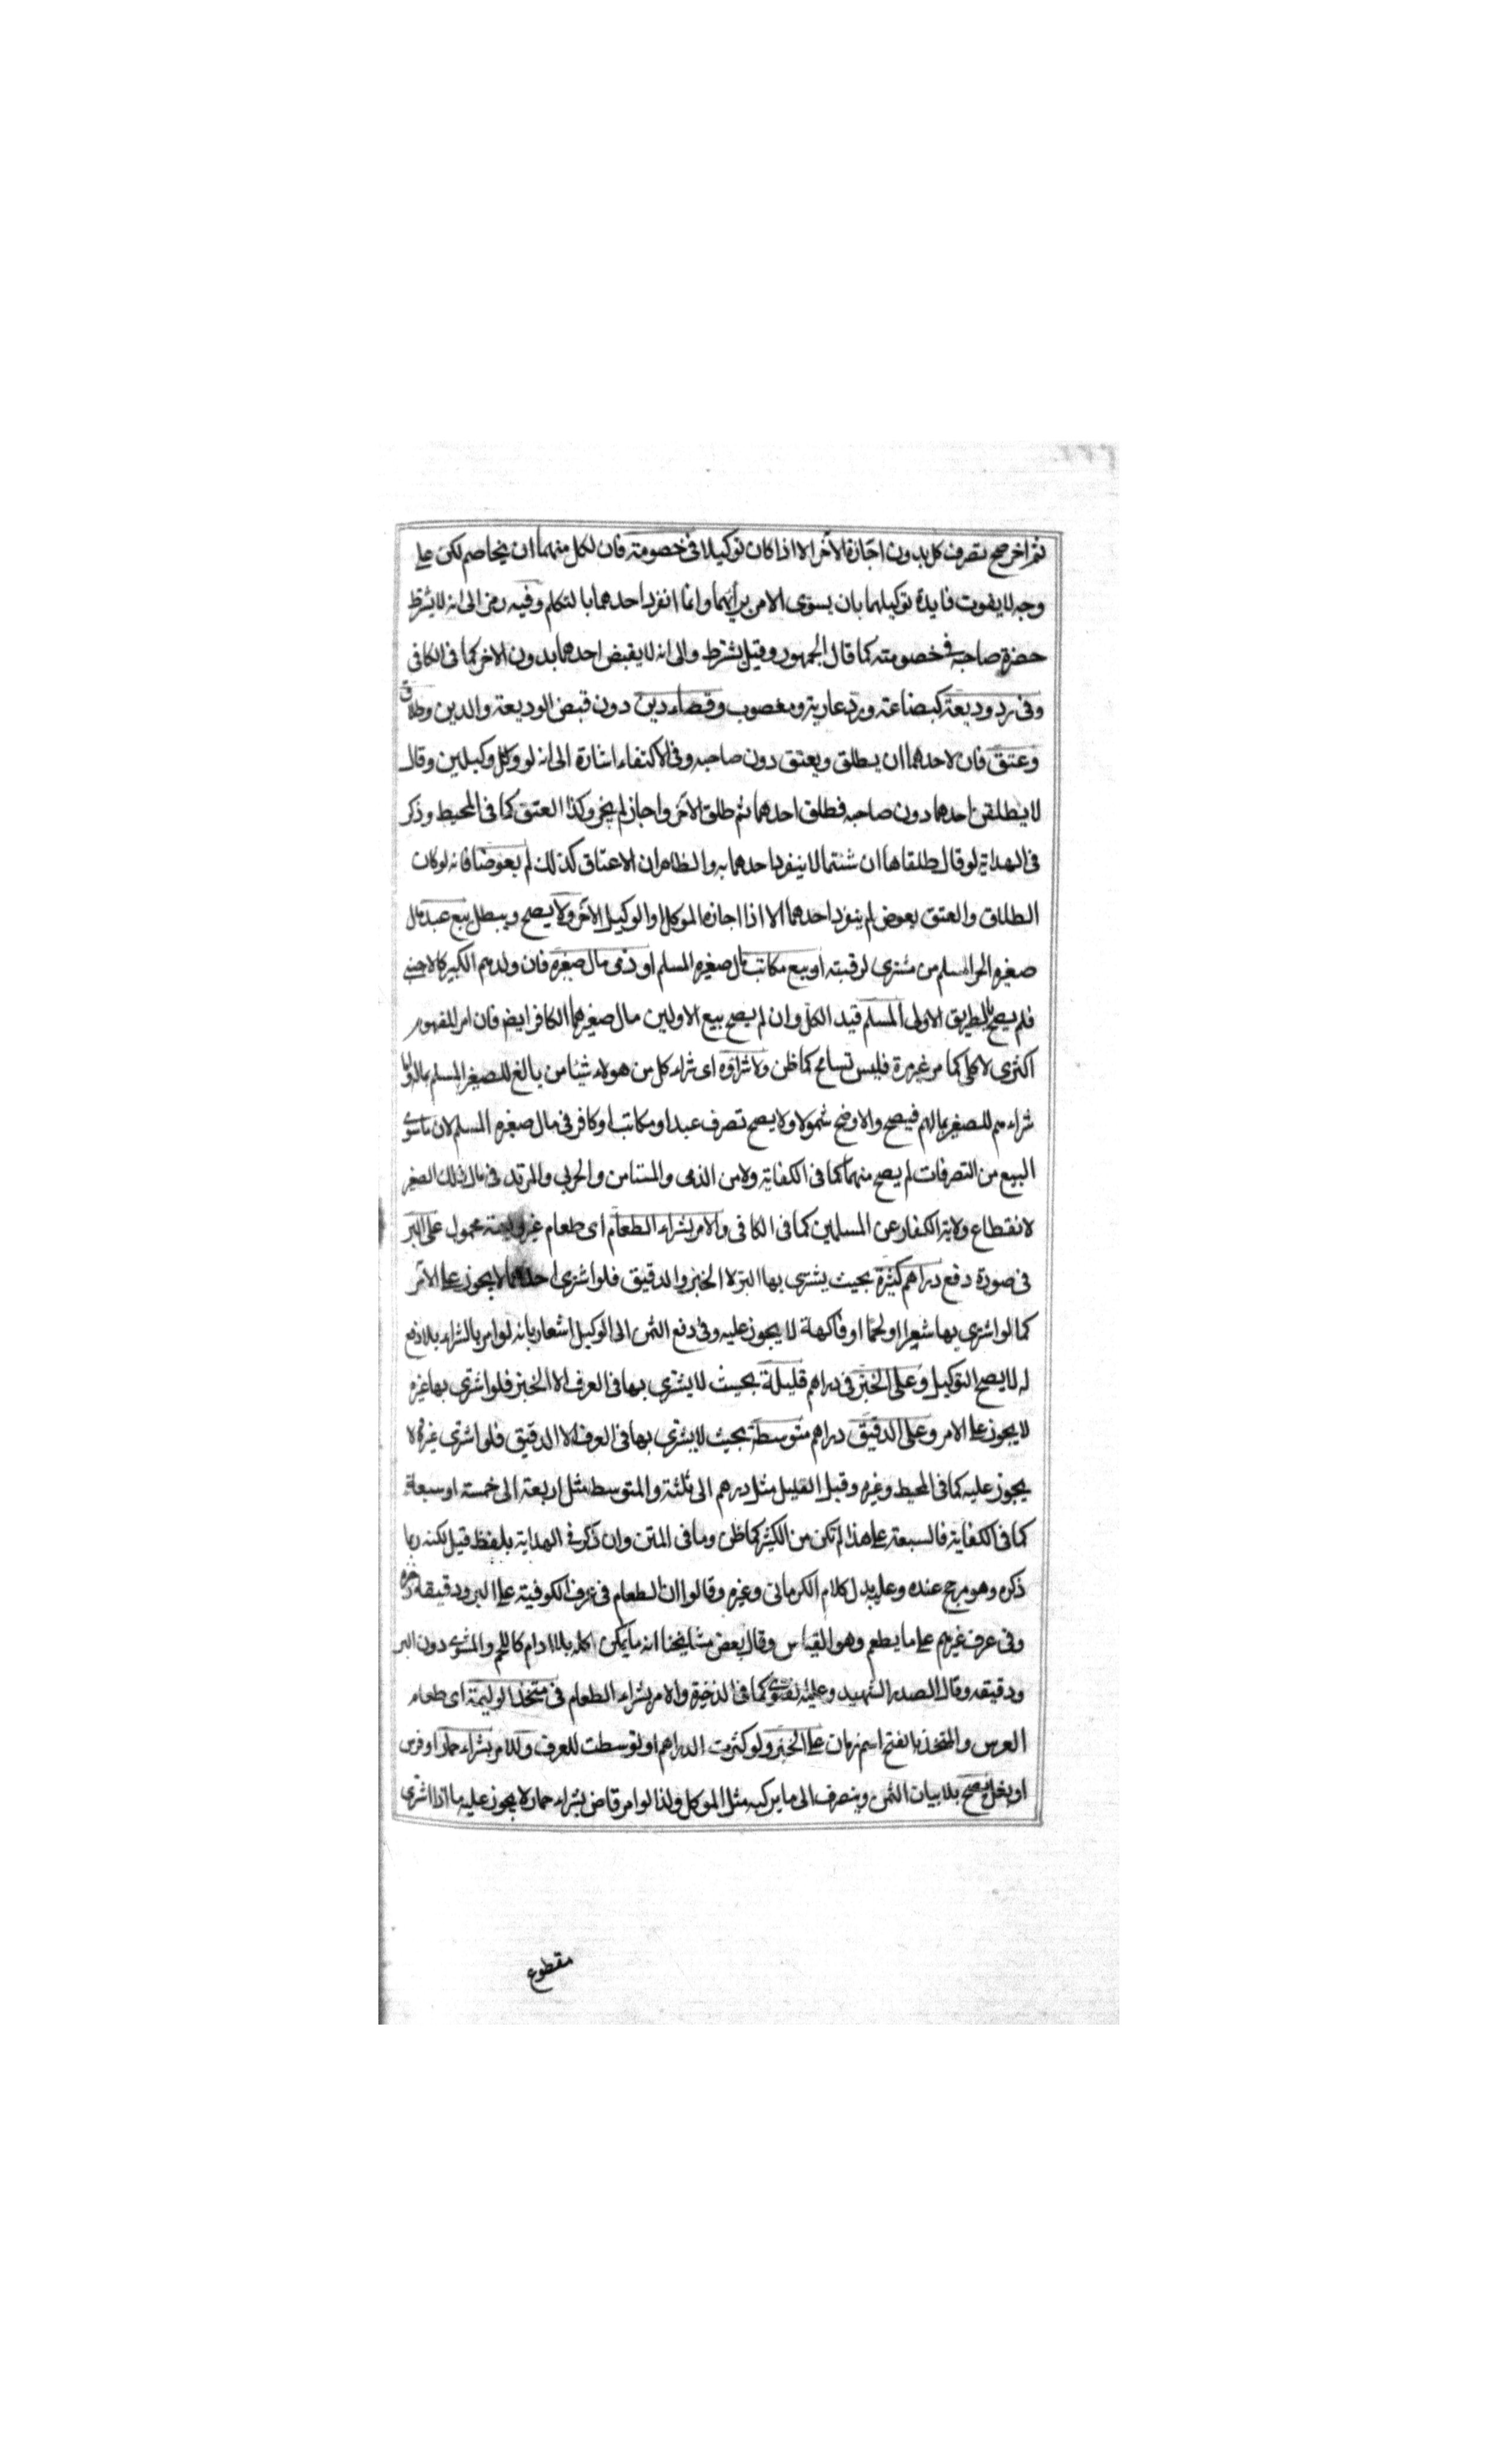 ثم اخر صح تصرف كل بدون اجازة الآخر الا اذا كان توكيلا فى خصومة فان لكل منهما ان يخاصم لكن على
وجه لا يفوت فايدة توكيلهما بان يسوى الامر برأيهما وانما انفرد احدهما بالتكلم وفيه رمز الى انه لا يشترط
حضرة صاحبه فى خصومته كما قال الجمهور وقيل يشترط والى انه لا يقبض احدهما بدون الاخر كما فى الكافى
وفى رد وديعة كبضاعة ورد عارية ومغصوب وقضاء دين دون قبض الوديعة والدين وطلاق
وعتق فان لاحدهما ان يطلق ويعتق دون صاحبه وفى الاكتفاء اشارة الى انه لو وكل وكيلين وقال
لا يطلقن احدهما دون صاحبه فطلق احدهما ثم طلق الآخر واجاز لم يجز وكذا العتق كما فى المحيط وذكر
فى الهداية لو قال طلقاها ان شئتما لا ينفرد احدهما به والظاهر ان الاعتاق كذلك لم يعوضا فانه لو كان
الطلاق والعتق بعوض لم ينفرد احدهما الا اذا اجازه الموكل او الوكيل الآخر ولا يصح ويبطل بيع عبد مال
صغيره الحر المسلم من مشترى لرقبته او بيع مكاتب مال صغيره المسلم او ذمى مال صغيره فان ولدهم الكبير كالاجنبى
فلم يصح بالطريق الاولى المسلم قيد الكل وان لم يصح بيع الاولين مال صغيرهما الكافر ايض فان امر المفهوم
اكثرى لا كلى كما مر غير مرة فليس تسامح كما ظن ولا شراؤه اى شراء كل من هولاء شيئا من بالغ للصغير المسلم بماله واما
شراءهم للصغير بمالهم فيصح والاوضح شمولا ولا يصح تصرف عبد او مكاتب او كافر فى مال صغيره المسلم لان ما سوى
البيع من التصرفات لم يصح منهما كما فى الكفاية ولا من الذمى والمستامن والحربى والمرتد فى مال ذلك الصغير
لانقطاع ولاية الكفار عن المسلمين كما فى الكافى والامر بشراء الطعام اى طعام غير وليمة محمول على البر
فى صورة دفع دراهم كثيرة بحيث يشترى بها البر لا الخبز والدقيق فلو اشترى احدهما لا يجوز على الآمر
كما لو اشترى بها شعيرا او لحما او فاكهة لا يجوز عليه وفى دفع الثمن الى الوكيل اشعار بانه لو امر بالشراء بلا دفع
له لا يصح التوكيل وعلى الخبز فى دراهم قليلة بحيث لا يشترى بها فى العرف الا الخبز فلو اشترى بها غيره
لا يجوز على الامر وعلى الدقيق دراهم متوسطة بحيث لا يشترى بها فى العرف الا الدقيق فلو اشترى غيره لا
يجوز عليه كما فى المحيط وغيره وقيل القليل مثل درهم الى ثلثة والمتوسط مثل اربعة الى خمسة او سبعة
كما فى الكفاية فالسبعة على هذا لم تكن من الكثير كما ظن وما فى المتن وان ذكر فى الهداية بلفظ قيل لكنه ربما
ذكره وهو مرجح عنده وعليه يدل كلام الكرمانى وغيره وقالوا ان الطعام فى عرف الكوفية على البر ودقيقه
وفى عرف غيرهم على ما يطعم وهو القياس وقال بعض مشايخنا انه ما يمكن اكله بلا ادام كاللحم والمشوى دون البر
ودقيقه وقال الصدر الشهيد وعليه الفتوى كما فى الذخيرة والامر بشراء الطعام فى متخذ الوليمة اى طعام
العرس والمتخذ بالفتح اسم زمان على الخبز ولو كثرت الدراهم او توسطت للعرف وللامر بشراء حمار او فرس
او بغل يصح بلا بيان الثمن وينصرف الى ما يركبه مثل الموكل ولذا لو امر قاض بشراء حمار لا يجوز عليه ما اذا اشترى
مقطوع